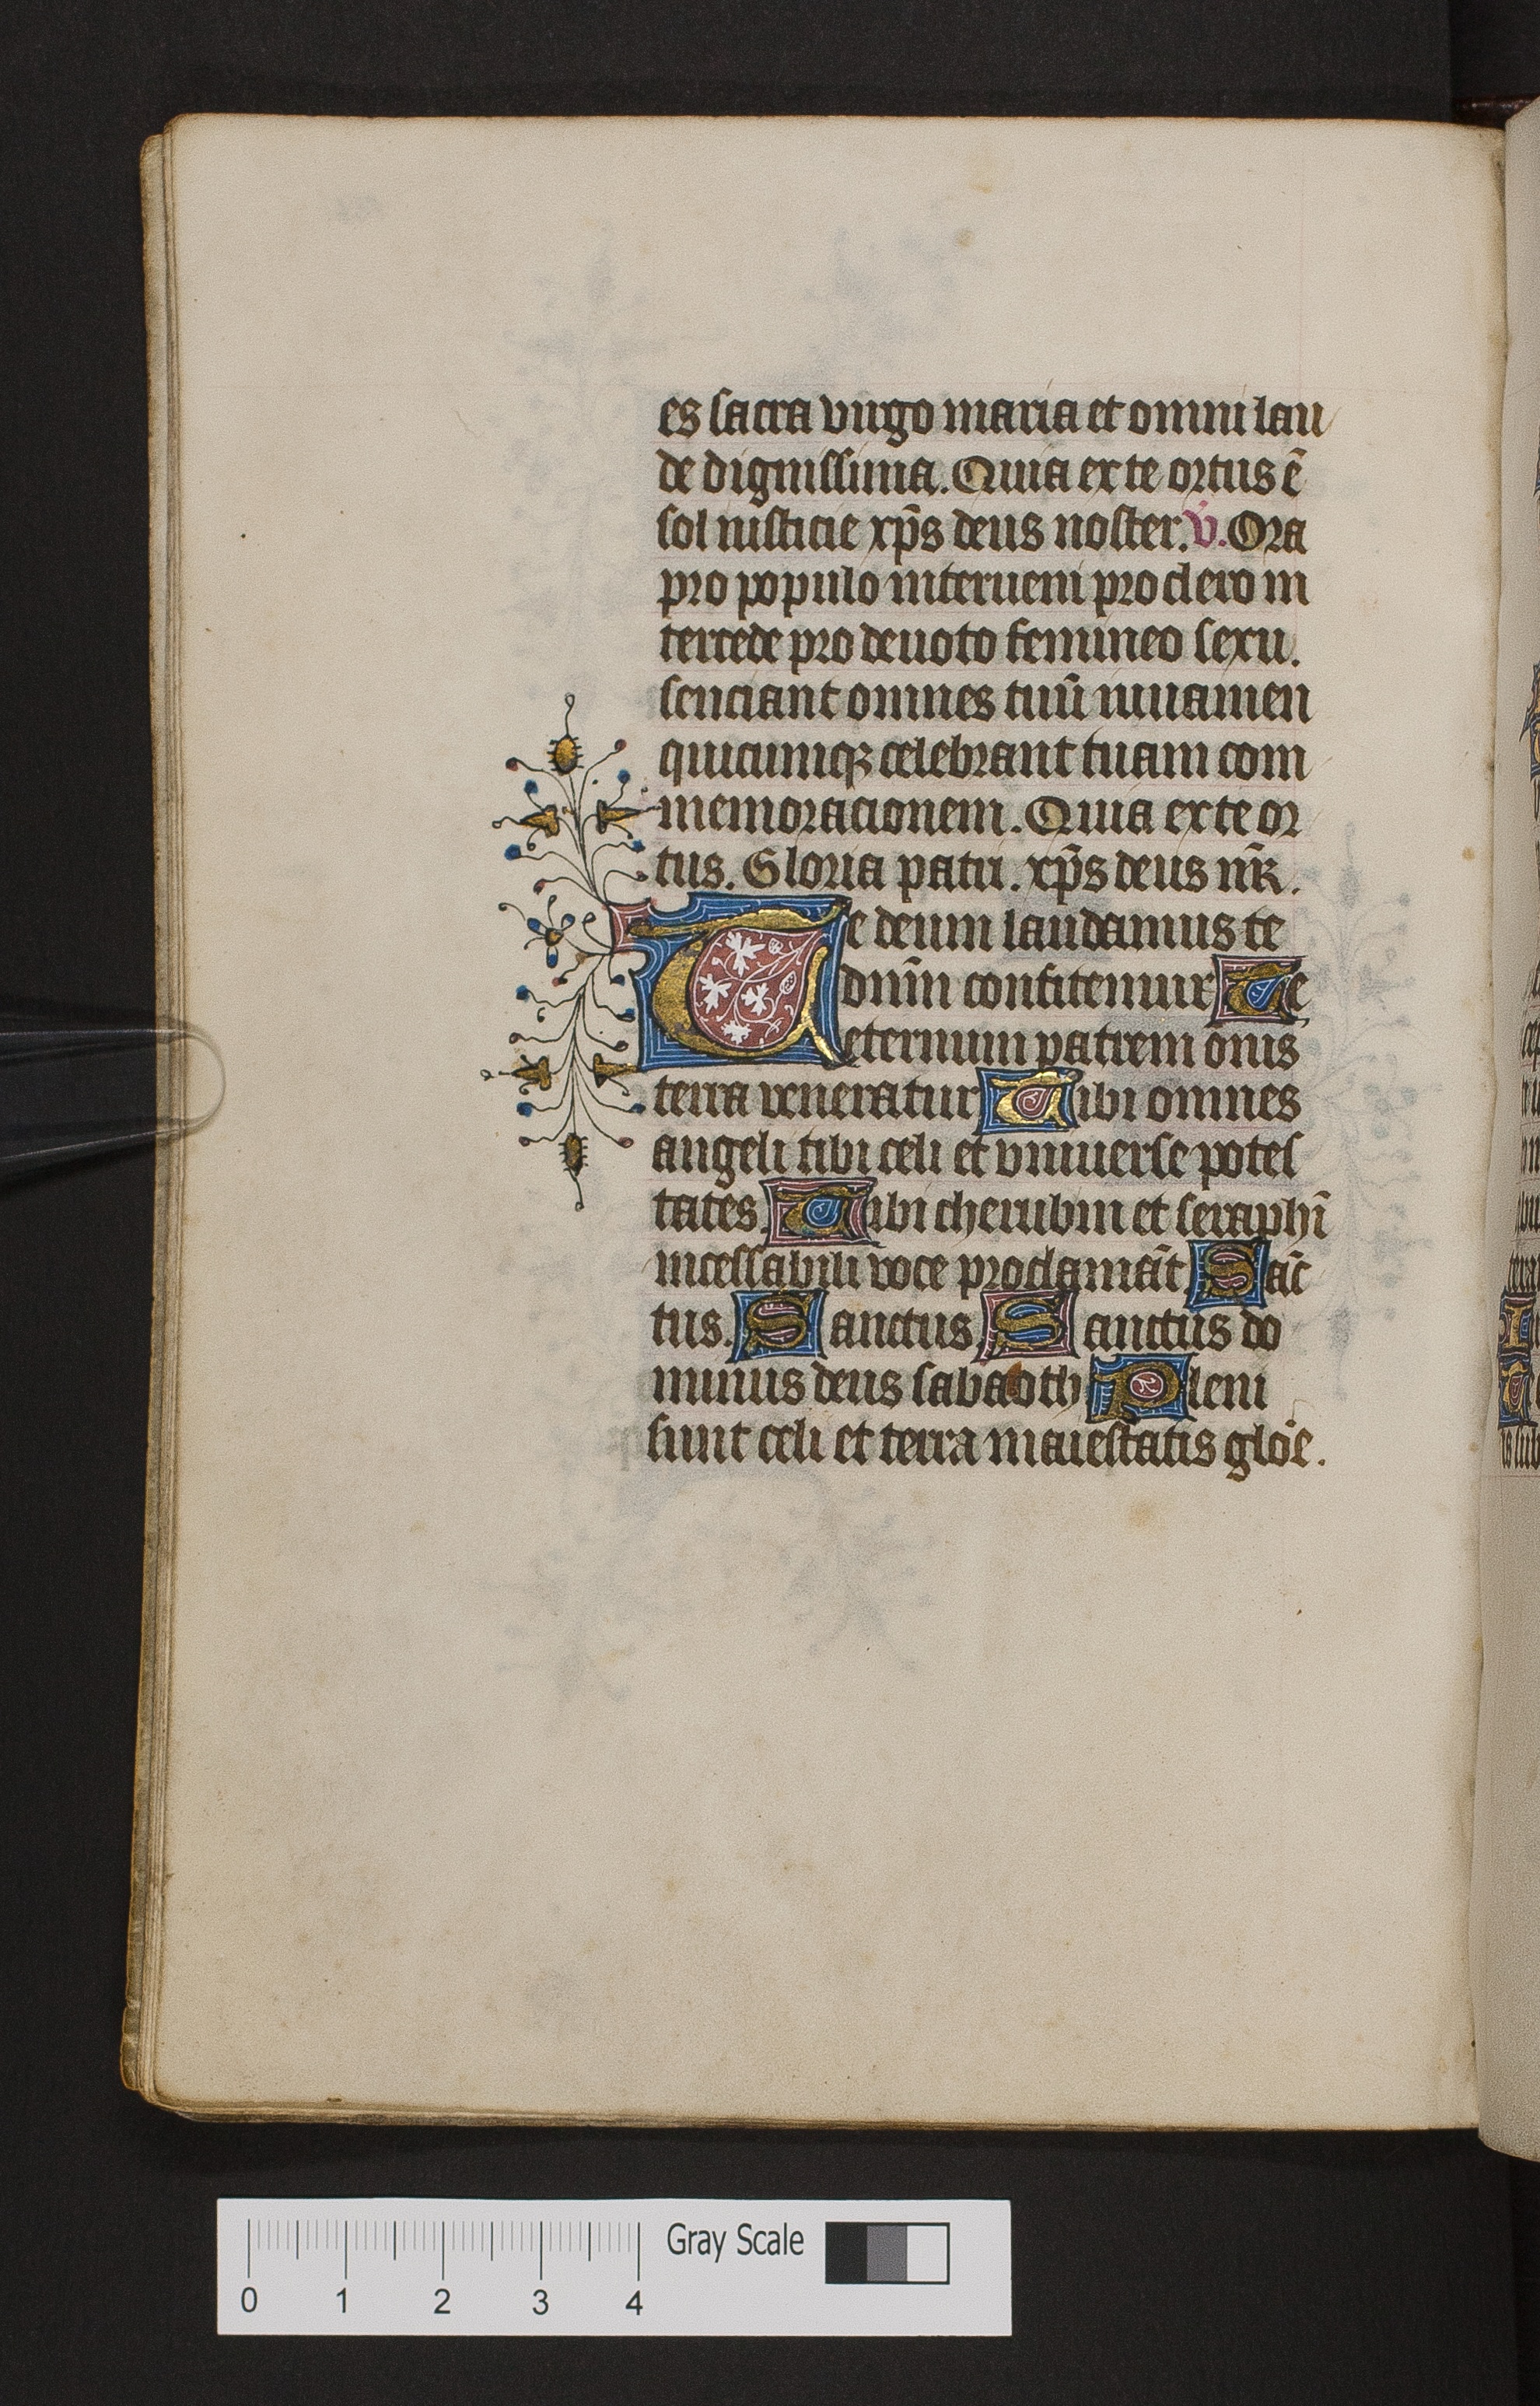 es sacra virgo maria et omni lau
de dignissima. Quia ex te ortus ē
sol iusticie xp̄s deus noster. V̇. Ora
pro populo interueni pro clero in
tercede pro deuoto femineo sexu.
senciant omnes tuū iuuamen
quicumqꝫ celebrant tuam com
memoracionem. Quia ex te or
tus. Gloria patri. xp̄s deus nr̄.
Te deum laudamus te
dn̄m confitemur Te
eternum patrem om̄is
terra veneratur Tibi omnes
angeli tibi celi et vniuerse potes
tates. Tibi cherubin et seraphī
incessabili voce proclamāt Sāc
tus. Sanctus Sanctus do
minus deus sabaoth Pleni
sunt celi et terra maiestatis glōe.
0 1 2 3 4 Gray Scale